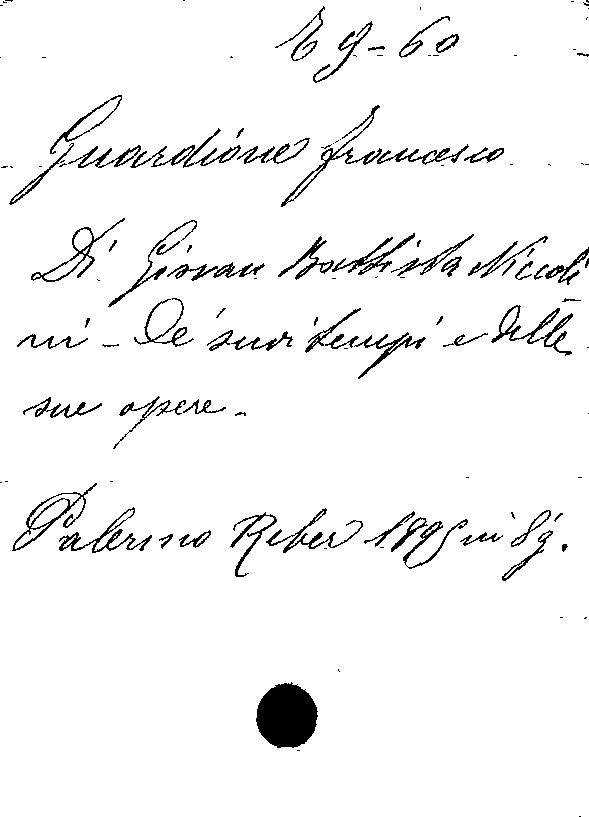 E 9-60
Guardione Francesco
Di Giovan Battista Niccoli
ni - De' suoi tempi e delle
sue opere.
Palermo Reber 1895 in 8º.